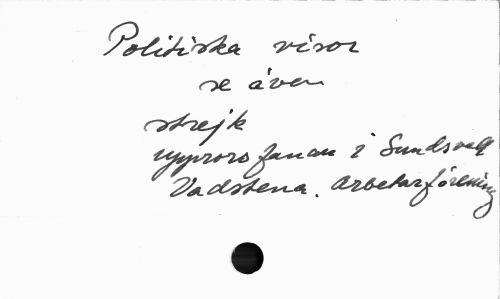 Politiska visor
se även
strejk
upprorsfanan i Sundsvall
Vadstena. Arbetarförening